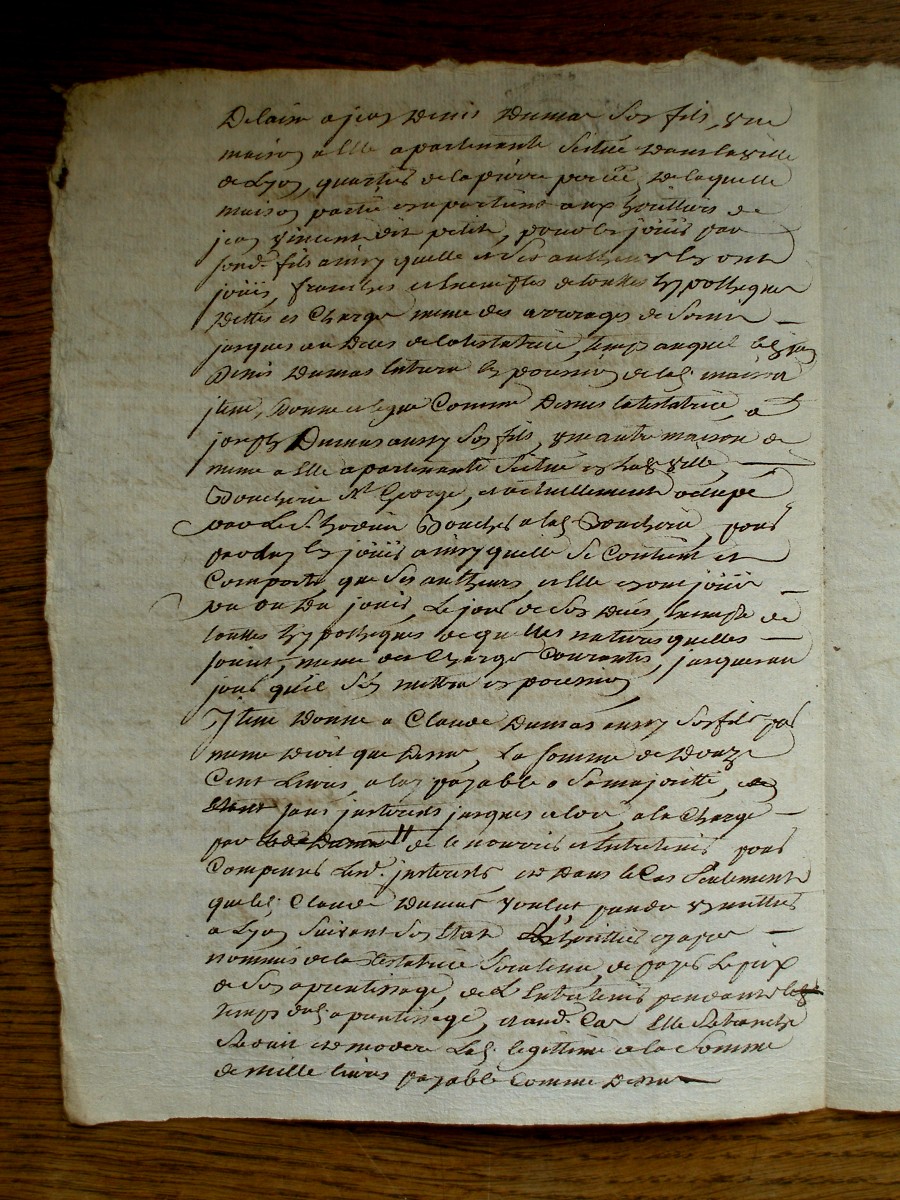 Delaire a jean Denis Dumas son fils, une
maison a Elle apartenante Scitué dans la ville
de Lyon, quartier de la pierre percée, de laquelle
maison partie en apartient aux heritiers de
jean vincent dit petit, pour en jouir par
sond. fils ainsy quelle et ses autheurs en ont
jouïs, franches et Exemptes de touttes hypotheques
Dettes et Charges meme des arrerages de
jusques au Deces de la testatrice, temps auquel led. jean
Denis Dumas Entrera en possession de lad. maison
jtem, Donne et legue Comme Dessus la testatrice, a
joseph Dumas aussy son fils, une autre maison de
meme a Elle apartenante Scitué en lad. ville,
Boucherie St George, et actuellement occupé
par le S. Boucher a lad. Boucherie, pour
par luy en jouir ainsy quelle se Contient et
Comporte, que ses autheurs, et Elle en ont jouïs
pu ou Du jouir, Le jour de son Deces, Exempte de
touttes hypotheques de quelles natures quelles
soient, meme des Charges Courantes, jusques au
jour qu'il s'en mettra en possession
Jtem Donne a Claude Dumas aussy son fils par
meme Droit que Dessus, La somme de Douze
Cent Livres, a luy payable a sa majorité, et
sans jnterests jusques alors, a la Charge
par de le nourrir et Entretenir, pour
Compenser Lesd. jnterests, et Dans le Cas seulement
que led. Claude Dumas voulut prendre un mettier
a Lyon suivant son Etat L'heritier cy apres
nommé de la Testatrice sera tenu, de payer Le prix
de son aprentissage, de L'Entretenir pendant le
temps dud. aprentissage, et aud. Cas Elle Retranche
Reduit et modere Lad. legittime a la somme
de mille livres payable Comme Dessus